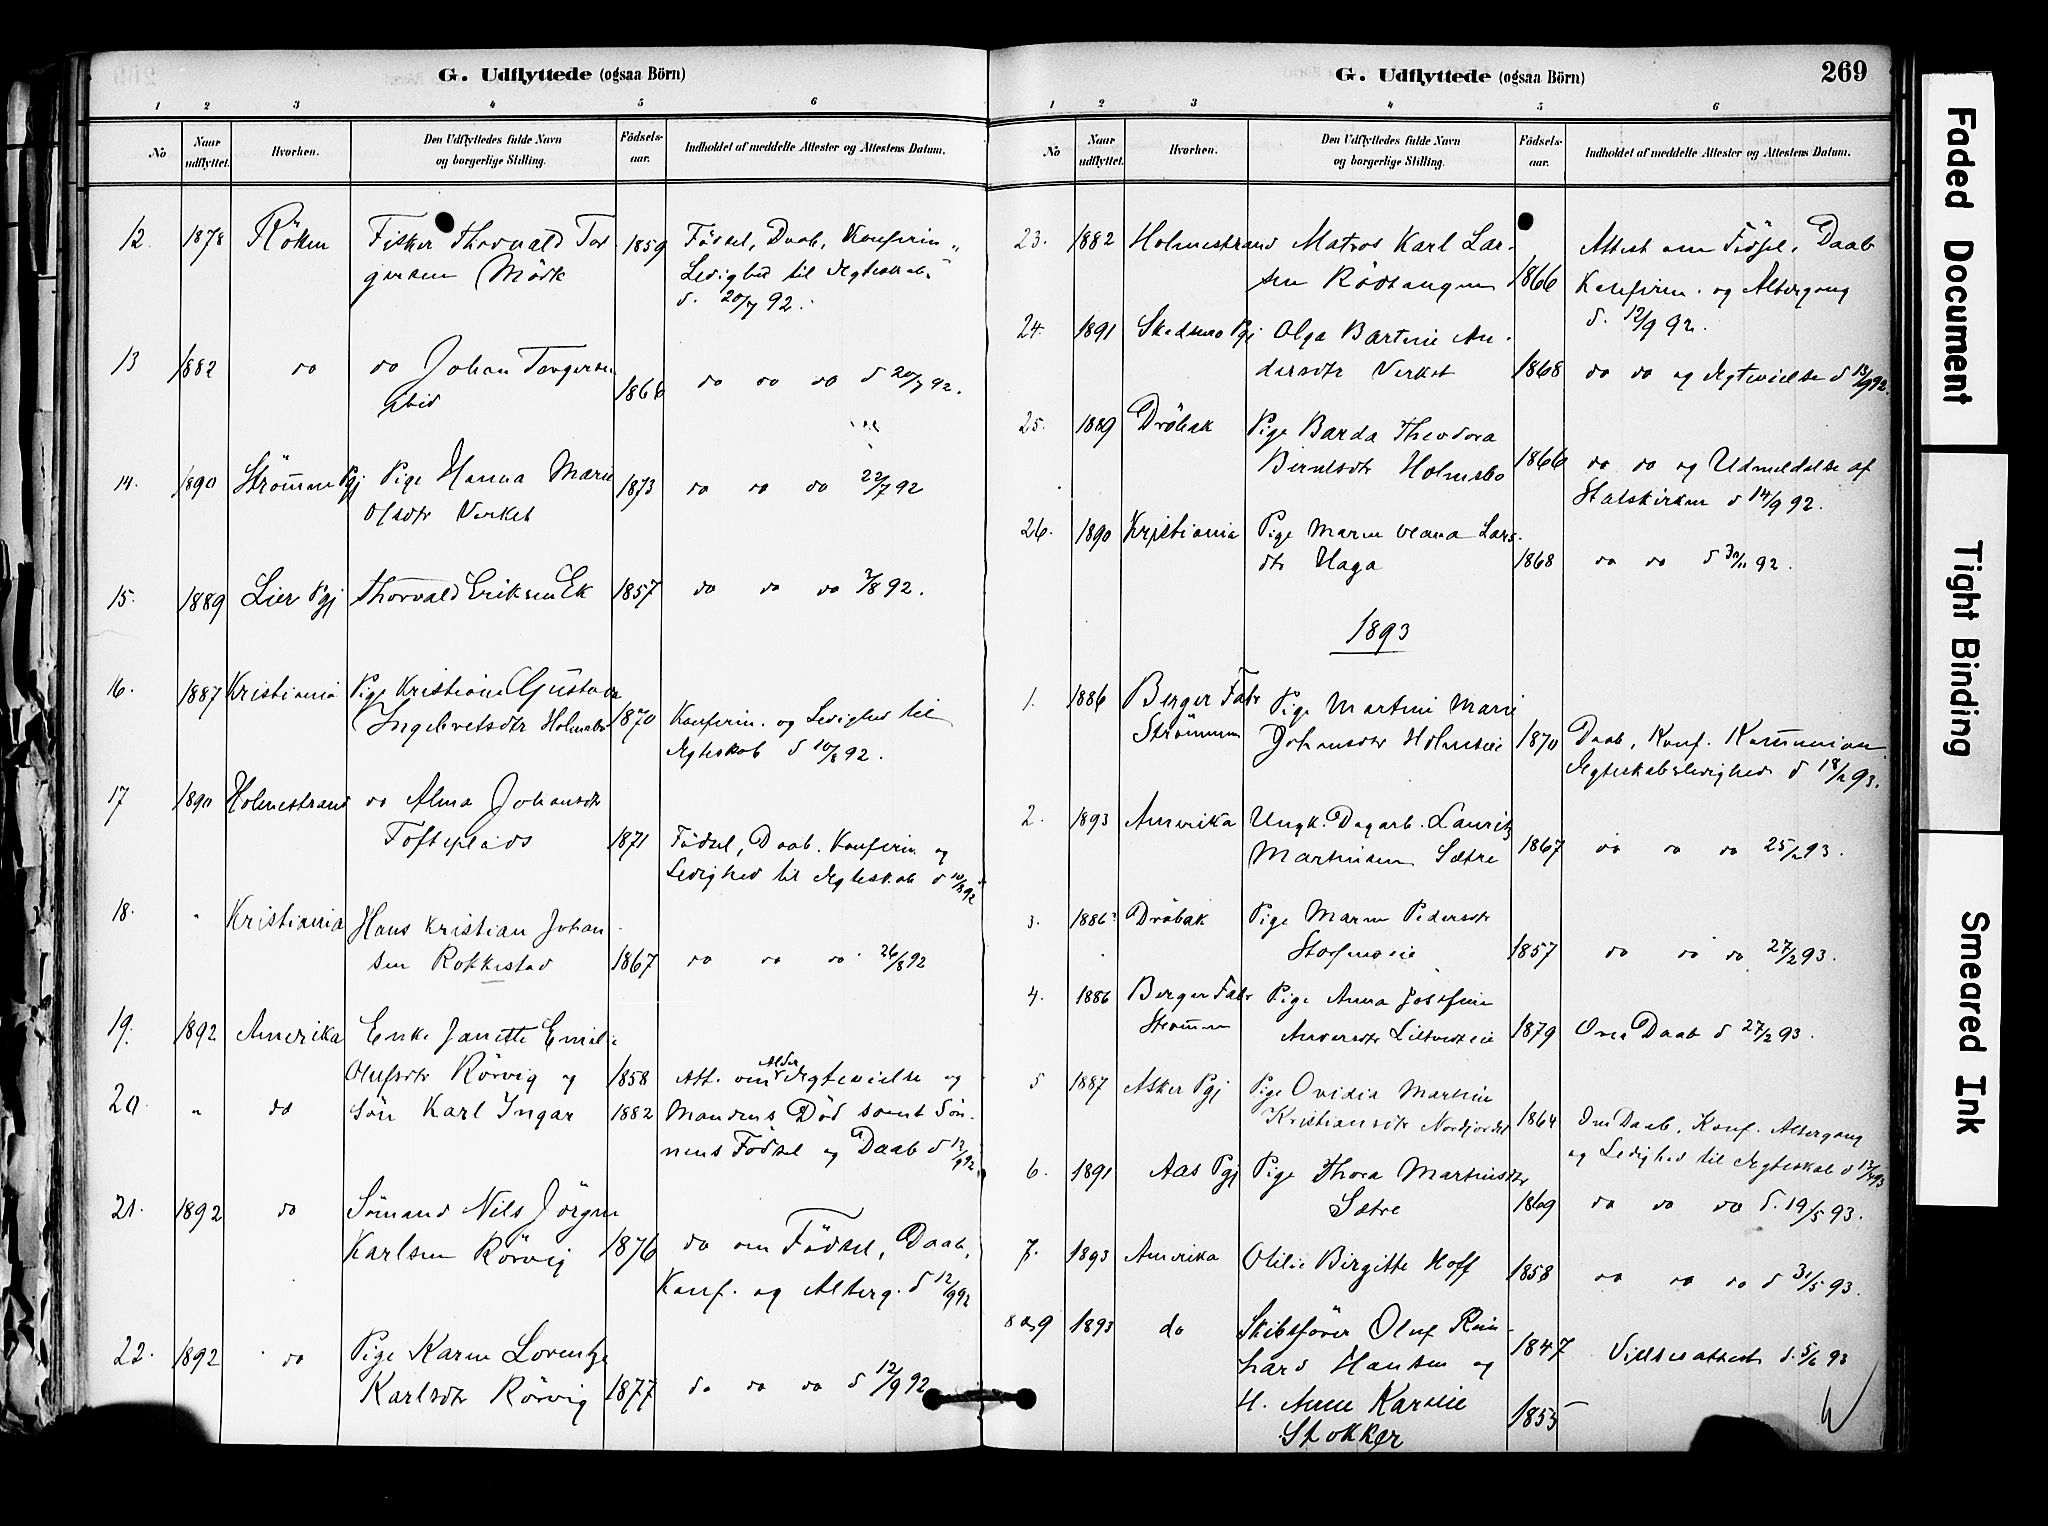 G. Udflyttede (ogsaa Börn)
1 2 3 4 5 6
No
Naar udflyttet.
Hvorhen.
Den Udflyttedes fulde Navn og borgerlige Stilling.
Födsels-aar.
Indholdet af meddelte Attester og Attestens Datum.
12. 1878 Röken Fisker Thorvald Tor 1859 Födsel, Daab, Konfirm.
gersen Mörk Ledighed til Ægteskab
d. 20/7 92.
13 1882 do do Johan Torgersen
ibid 1866 do do do d 20/7 92.
14. 1890 Strömm Pgj Pige Hanna Marie 1873 do do do 22/7 92
Olsdtr Verket
15. 1889 Lier Pgj Thorvald Eriksen Ek 1857 do do do 2/8 92.
16. 1887 Kristiania Pige Kristine Gustava
Ingebretsdtr Holmsbo 1870 Konfirm. og Ledighed til
Ægteskab d 10/8 92.
17 1890 Holmestrand do Alma Johansdtr
Tofteplads 1871 Födsel, Daab. Konfirm og
Ledighed til Ægteskab d 10/8 92
18. " Kristiania Hans Kristian Johan
sen Rokkestad 1867 do do do 26/8 92
19. 1892 Amerika Enke Janette Emilie
Olufsdtr Rörvig og 1858 Att. om Alder Ægtevielse og
20. " do Sön Karl Ingar 1882 Mandens Död samt Sön-
nens Födsel og Daab d 12/9 92.
21. 1892 do Sömand Nils Jörgen
Karlsen Rörvig 1876 do om Födsel, Daab,
Konf. og Alterg. d 12/9 92
22. 1892 do Pige Karen Lorentze
Karlsdtr Rörvig 1877 do do do d 12/9 92
G. Udflyttede (ogsaa Börn)
269
1 2 3 4 5 6
No
Naar udflyttet.
Hvorhen.
Den Udflyttedes fulde Navn og borgerlige Stilling.
Födsels-aar.
Indholdet af meddelte Attester og Attestens Datum.
23. 1882 Holmestrand Matros Karl Lar-
sen Rödtangen 1866 Attest om Födsel, Daab
Konfirm. og Altergang
d. 12/9 92.
24. 1891 Skedsmo Pgj Olga Bartine An-
dersdtr Verket 1868 do do og Ægtevielse d 13/9 92.
25. 1889 Dröbak Pige Barda Theodora
Berntsdtr Holmsbo 1866 do do og Udmeldelse af
Statskirken d 14/9 92.
26. 1890 Kristiania Pige Maren Oleana Lars-
dtr Haga 1868 do do d 30/11 92.
1893
1. 1886 Berger Fabr Strömmen Pige Martine Marie
Johansdtr Holmseie 1870 Daab, Konf. Kommunion
Ægteskabsledighed d 18/2 93.
2. 1893 Amerika Ungk. Dagarb. Lauritz
Martinsen Sætre 1867 do do do 25/2 93.
3. 1886 Dröbak Pige Maren Pedersdtr
1857 do do do 27/2 93.
4. 1886 Berger Fabr Strömm Pige Anna Josefine
Andersdtr 1879 Om Daab d 27/2 93.
5 1887 Asker Pgj Pige Ovidia Martine
Kristiansdtr Nordjordet 1864 Om Daab, Konf. Altergang
og Ledighed til Ægteskab d 93
6. 1891 Aas Pgj Pige Thora Martinsdtr
Sætre 1869 do do do d. 19/5 93.
7. 1893 Amerika Otilie Birgitte Hoff 1858 do do do d 31/5 93.
8 og 9 1893 do Skibsförer Oluf Rein-
hard Hansen og 1847 Vielsesattest d. 5/6 93
H. Anne Karine 1855
Stokker
Faded Document
Tight Binding
Smeared Ink